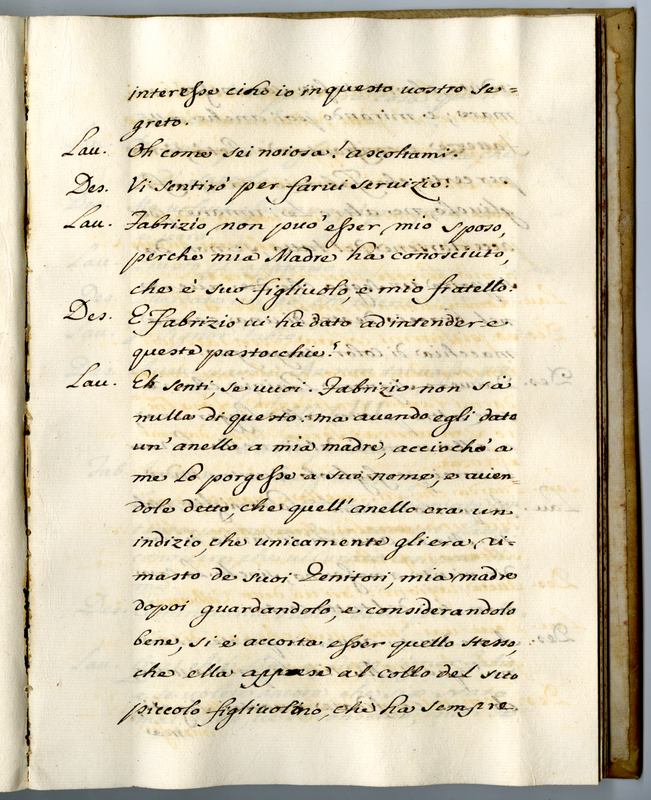 interesse ci ho io in questo vostro se=
greto.
Lau. Oh come sei noiosa! ascoltami.
Des. Vi sentirò per farvi servizio.
Lau. Fabrizio non può esser mio sposo,
perche mia Madre ha conosciuto,
che è suo figliuolo, e mio fratello.
Des. E Fabrizio vi ha dato ad intendere
queste pastocchie?
Lau. Eh senti, se vuoi. Fabrizio non sà
nulla di questo: ma avendo egli dato
un' anello a mia madre, acciochè a
me lo porgesse a suo nome, e aven=
dole detto, che quell' anello era un
indizio, che unicamente gli era ri=
masto de suoi Genitori, mia madre
dopoi guardandolo, e considerandolo
bene, si è accorta esser quello stesso,
che ella appese al collo del suo
piccolo figliuolino, che ha sempre